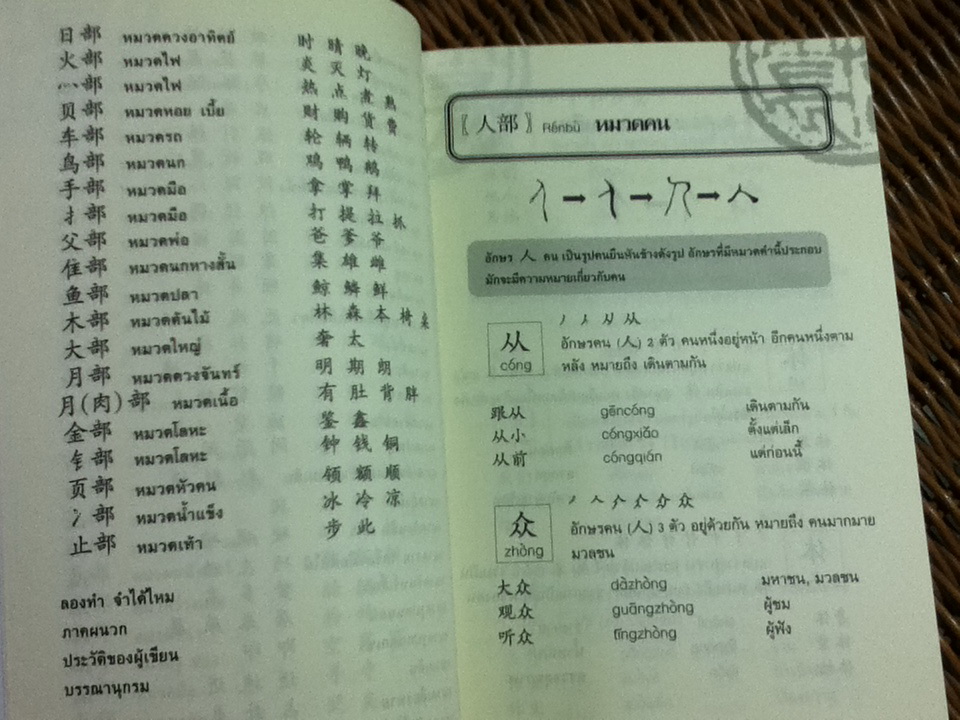 日部 หมวดดวงอาทิตย์ 时 晴 晚
火部 หมวดไฟ 炎 灭 灯
灬部 หมวดไฟ 热 点 煮 熟
贝部 หมวดหอย เบี้ย 财 购 货 费
车部 หมวดรถ 轮 辆 转
鸟部 หมวดนก 鸡 鸭 鹅
手部 หมวดมือ 拿 掌 拜
扌部 หมวดมือ 打 提 拉 抓
父部 หมวดพ่อ 爸 爹 爷
隹部 หมวดนกหางสั้น 集 雄 雌
鱼部 หมวดปลา 鲸 鳞 鲜
木部 หมวดต้นไม้ 林 森 本 椅 桌
大部 หมวดใหญ่ 奢 太
月部 หมวดดวงจันทร์ 明 期 朗
月(肉)部 หมวดเนื้อ 有 肚 背 胖
金部 หมวดโลหะ 鉴 鑫
钅部 หมวดโลหะ 钟 钱 铜
页部 หมวดหัวคน 领 额 顺
冫部 หมวดน้ำแข็ง 冰 冷 凉
止部 หมวดเท้า 步 此
ลองทำ จำได้ไหม
ภาคผนวก
ประวัติของผู้เขียน
บรรณานุกรม
〖人部〗 Rénbù หมวดคน
อักษร 人 คน เป็นรูปคนยืนหันข้างดังรูป อักษรที่มีหมวดคำนี้ประกอบ
มักจะมีความหมายเกี่ยวกับคน
丿 人 从 从
从
cóng
อักษรคน (人) 2 ตัว คนหนึ่งอยู่หน้า อีกคนหนึ่งตาม
หลัง หมายถึง เดินตามกัน
跟从 gēncóng เดินตามกัน
从小 cóngxiǎo ตั้งแต่เล็ก
从前 cóngqián แต่ก่อนนี้
众
zhòng
อักษรคน (人) 3 ตัว อยู่ด้วยกัน หมายถึง คนมากมาย
มวลชน
大众 dàzhòng มหาชน, มวลชน
观众 guānzhòng ผู้ชม
听众 tīngzhòng ผู้ฟัง